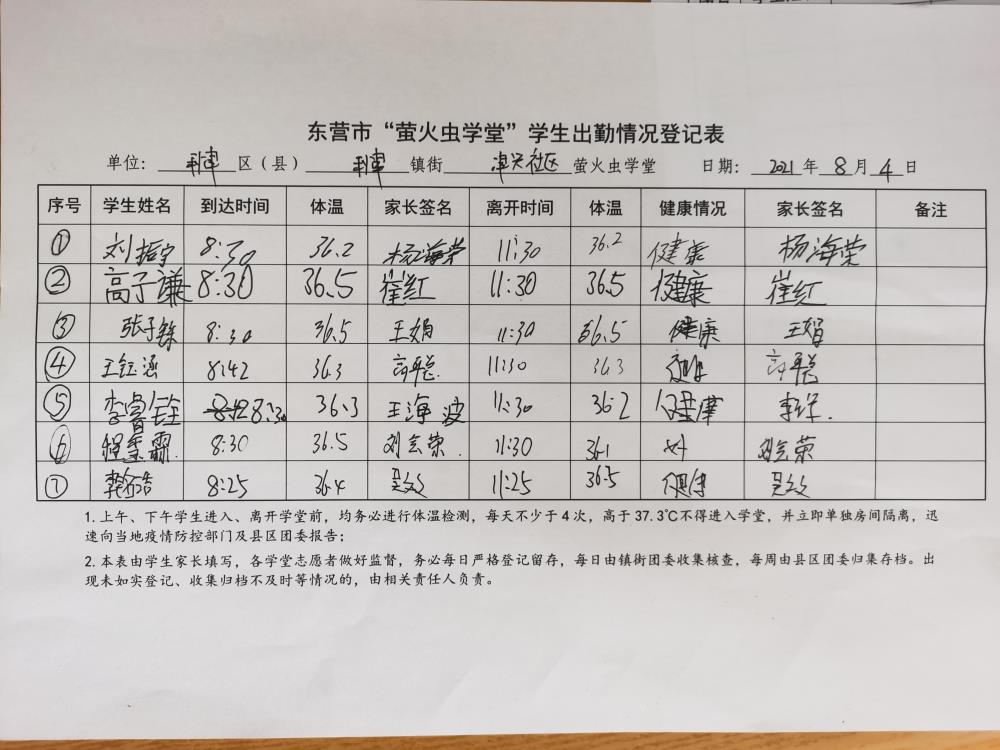 东营市“萤火虫学堂”学生出勤情况登记表
单位： 区（县） 镇街 社区 萤火虫学堂 日期：2021年8月4日
序号 学生姓名 到达时间 体温 家长签名 离开时间 体温 健康情况 家长签名 备注
① 刘振宇 8:30 36.2 杨海荣 11:30 36.2 健康 杨海荣
② 高子谦 8:30 36.5 崔红 11:30 36.5 健康 崔红
③ 张子铄 8:30 36.5 王娟 11:30 36.5 健康 王娟
④ 王钰涵 8:42 36.3 11:30 36.3
⑤ 李睿铨 8:30 36.3 王海波 11:30 36.2 健康
⑥ 8:30 36.5 刘会荣. 11:30 36.1 好 刘会荣
⑦ 8:25 36.4 11:25 36.5 健康
1. 上午、下午学生进入、离开学堂前，均务必进行体温检测，每天不少于4次，高于37.3℃不得进入学堂，并立即单独房间隔离，迅
速向当地疫情防控部门及县区团委报告；
2. 本表由学生家长填写，各学堂志愿者做好监督，务必每日严格登记留存，每日由镇街团委收集核查，每周由县区团委归集存档。出
现未如实登记、收集归档不及时等情况的，由相关责任人负责。